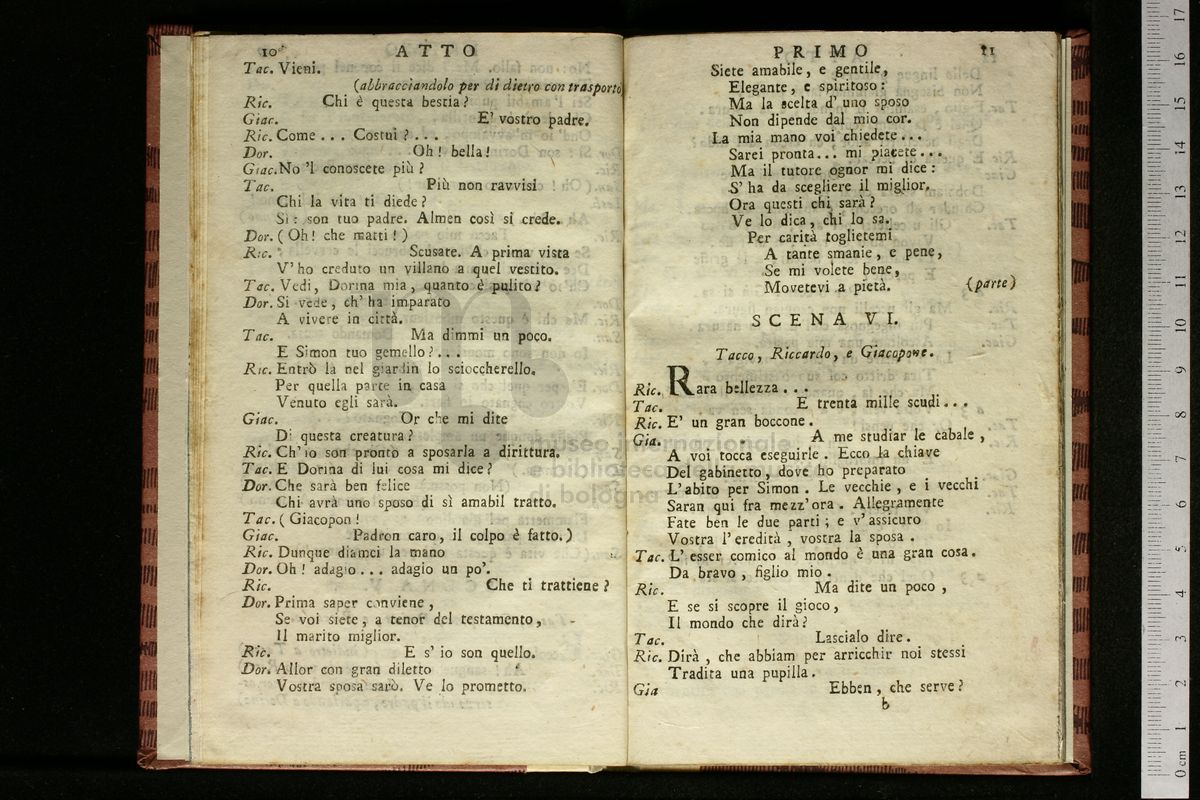 10 ATTO
Tac. Vieni.
(abbracciandolo per di dietro con trasporto
Ric. Chi è questa bestia?
Giac. E' vostro padre.
Ric. Come... Costui?...
Dor. Oh! bella!
Giac. No 'l conoscete più?
Tac. Più non ravvisi
Chi la vita ti diede?
Sì: son tuo padre. Almen così si crede.
Dor. (Oh! che matti!)
Ric. Scusate. A prima vista
V' ho creduto un villano a quel vestito.
Tac. Vedi, Dorina mia, quanto è pulito?
Dor. Si vede, ch' ha imparato
A vivere in città.
Tac. Ma dimmi un poco.
E Simon tuo gemello?...
Ric. Entrò la nel giardin lo scioccherello.
Per quella parte in casa
Venuto egli sarà.
Giac. Or che mi dite
Di questa creatura?
Ric. Ch' io son pronto a sposarla a dirittura.
Tac. E Dorina di lui cosa mi dice?
Dor. Che sarà ben felice
Chi avrà uno sposo di sì amabil tratto.
Tac. (Giacopon!
Giac. Padron caro, il colpo è fatto.)
Ric. Dunque diamci la mano
Dor. Oh! adagio... adagio un po'.
Ric. Che ti trattiene?
Dor. Prima saper conviene,
Se voi siete, a tenor del testamento,
Il marito miglior.
Ric. E s' io son quello.
Dor. Allor con gran diletto
Vostra sposa sarò. Ve lo prometto.
PRIMO 11
Siete amabile, e gentile,
Elegante, e spiritoso:
Ma la scelta d' uno sposo
Non dipende dal mio cor.
La mia mano voi chiedete...
Sarei pronta... mi piacete...
Ma il tutore ognor mi dice:
S' ha da scegliere il miglior.
Ora questi chi sarà?
Ve lo dica, chi lo sa.
Per carità toglietemi
A tante smanie, e pene,
Se mi volete bene,
Movetevi a pietà. (parte)
SCENA VI.
Tacco, Riccardo, e Giacopone.
Ric. Rara bellezza...
Tac. E trenta mille scudi...
Ric. E' un gran boccone.
Gia. A me studiar le cabale,
A voi tocca eseguirle. Ecco la chiave
Del gabinetto, dove ho preparato
L' abito per Simon. Le vecchie, e i vecchi
Saran qui fra mezz' ora. Allegramente
Fate ben le due parti; e v' assicuro
Vostra l' eredità, vostra la sposa.
Tac. L' esser comico al mondo è una gran cosa.
Da bravo, figlio mio.
Ric. Ma dite un poco,
E se si scopre il gioco,
Il mondo che dirà?
Tac. Lascialo dire.
Ric. Dirà, che abbiam per arricchir noi stessi
Tradita una pupilla.
Gia Ebben, che serve?
b
museo internazionale
e biblioteca
di bologna